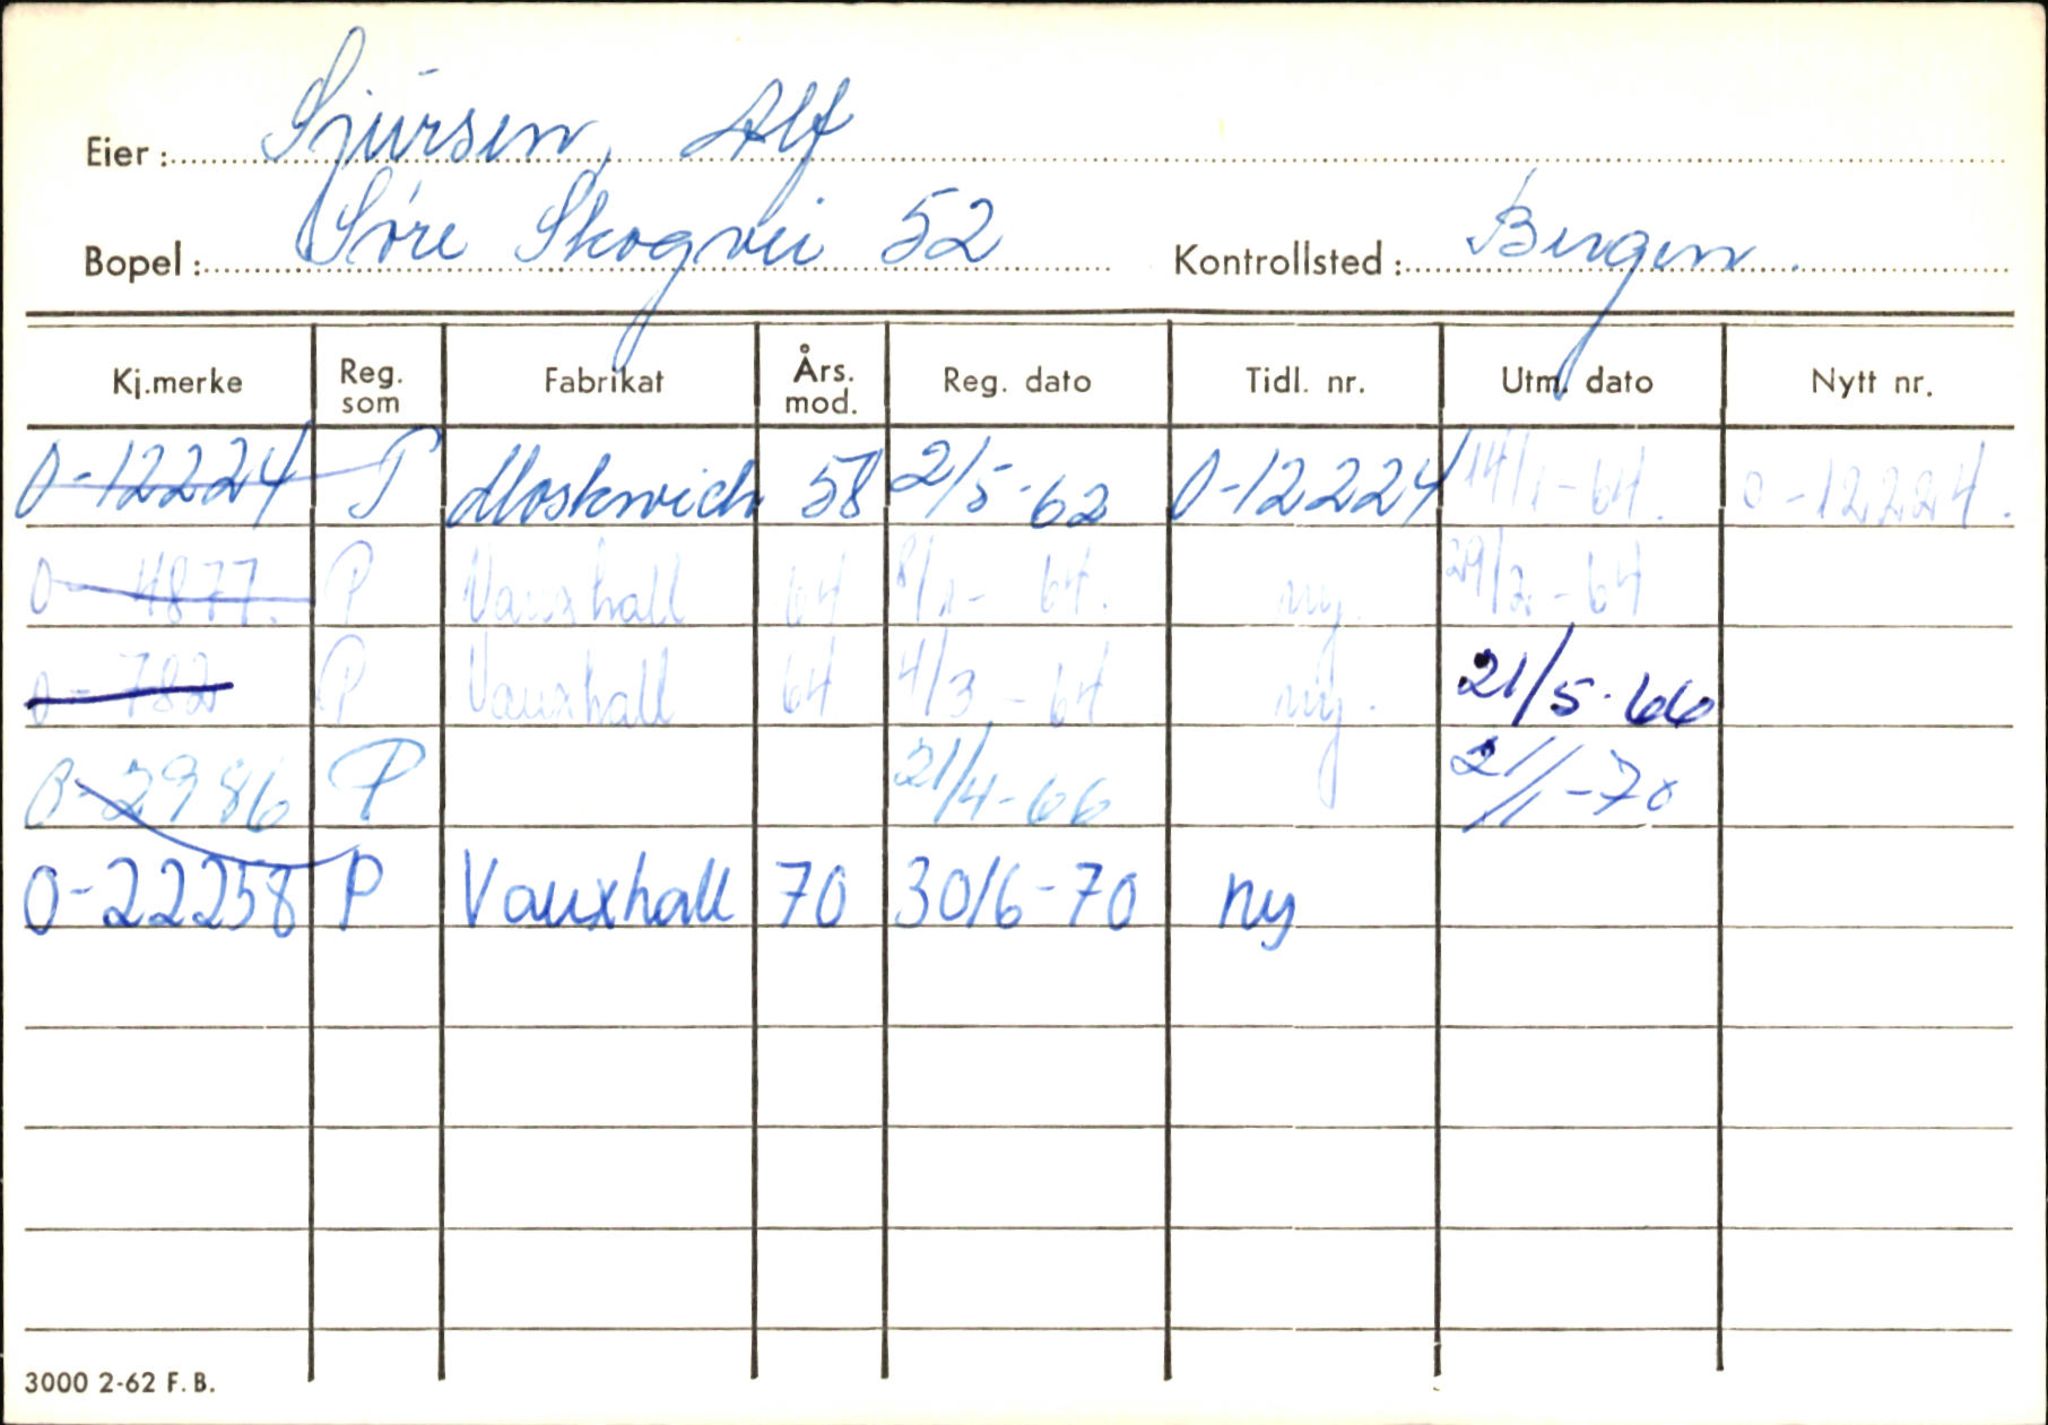 Eier: Sjursen, Alf
Bopel: Søre Skogvei 52 Kontrollsted: Bergen.
Kj.merke Reg. som Fabrikat Års. mod. Reg. dato Tidl. nr. Utm. dato Nytt nr.
O-12224 P Moskwich 58 2/5-62 O-12224 14/1-64. O-12224.
O-4877. P Vauxhall 64 8/1-64. ny. 29/2-64
O-782 P Vauxhall 64 4/3-64 ny. 21/5-66
O-2986 P 21/4-66 21/1-70
O-22258 P Vauxhall 70 30/6-70 ny
3000 2-62 F.B.